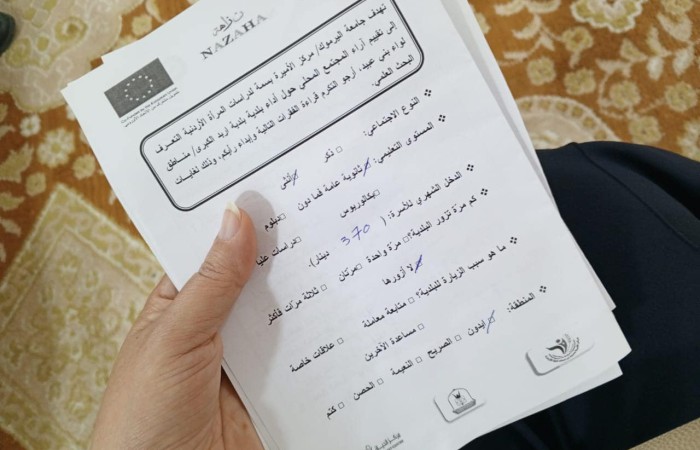 نزاهة
NAZAHA
Co-Funded by the European Union
تهدف جامعة اليرموك/ مركز الأميرة بسمة لدراسات المرأة الأردنية التعرف
إلى تقييم آراء المجتمع المحلي حول أداء بلدية بلدية اربد الكبرى/ مناطق
لواء بني عبيد، أرجو التكرم قراءة الفقرات التالية وإبداء رأيكم، وذلك لغايات
البحث العلمي.
❖ النوع الاجتماعي: □ ذكر □ أنثى
❖ المستوى التعليمي: □ ثانوية عامة فما دون □ دبلوم
□ بكالوريوس □ دراسات عليا
❖ الدخل الشهري للأسرة: ( 370 دينار).
❖ كم مرّة تزور البلدية؟ □ مرّة واحدة □ مرّتان □ ثلاثة مرّات فأكثر
□ لا أزورها
❖ ما هو سبب الزيارة للبلدية؟ □ متابعة معاملة □ علاقات خاصة
□ مساعدة الآخرين
❖ المنطقة: □ ايدون □ الصريح □ النعيمة □ الحصن □ كتم